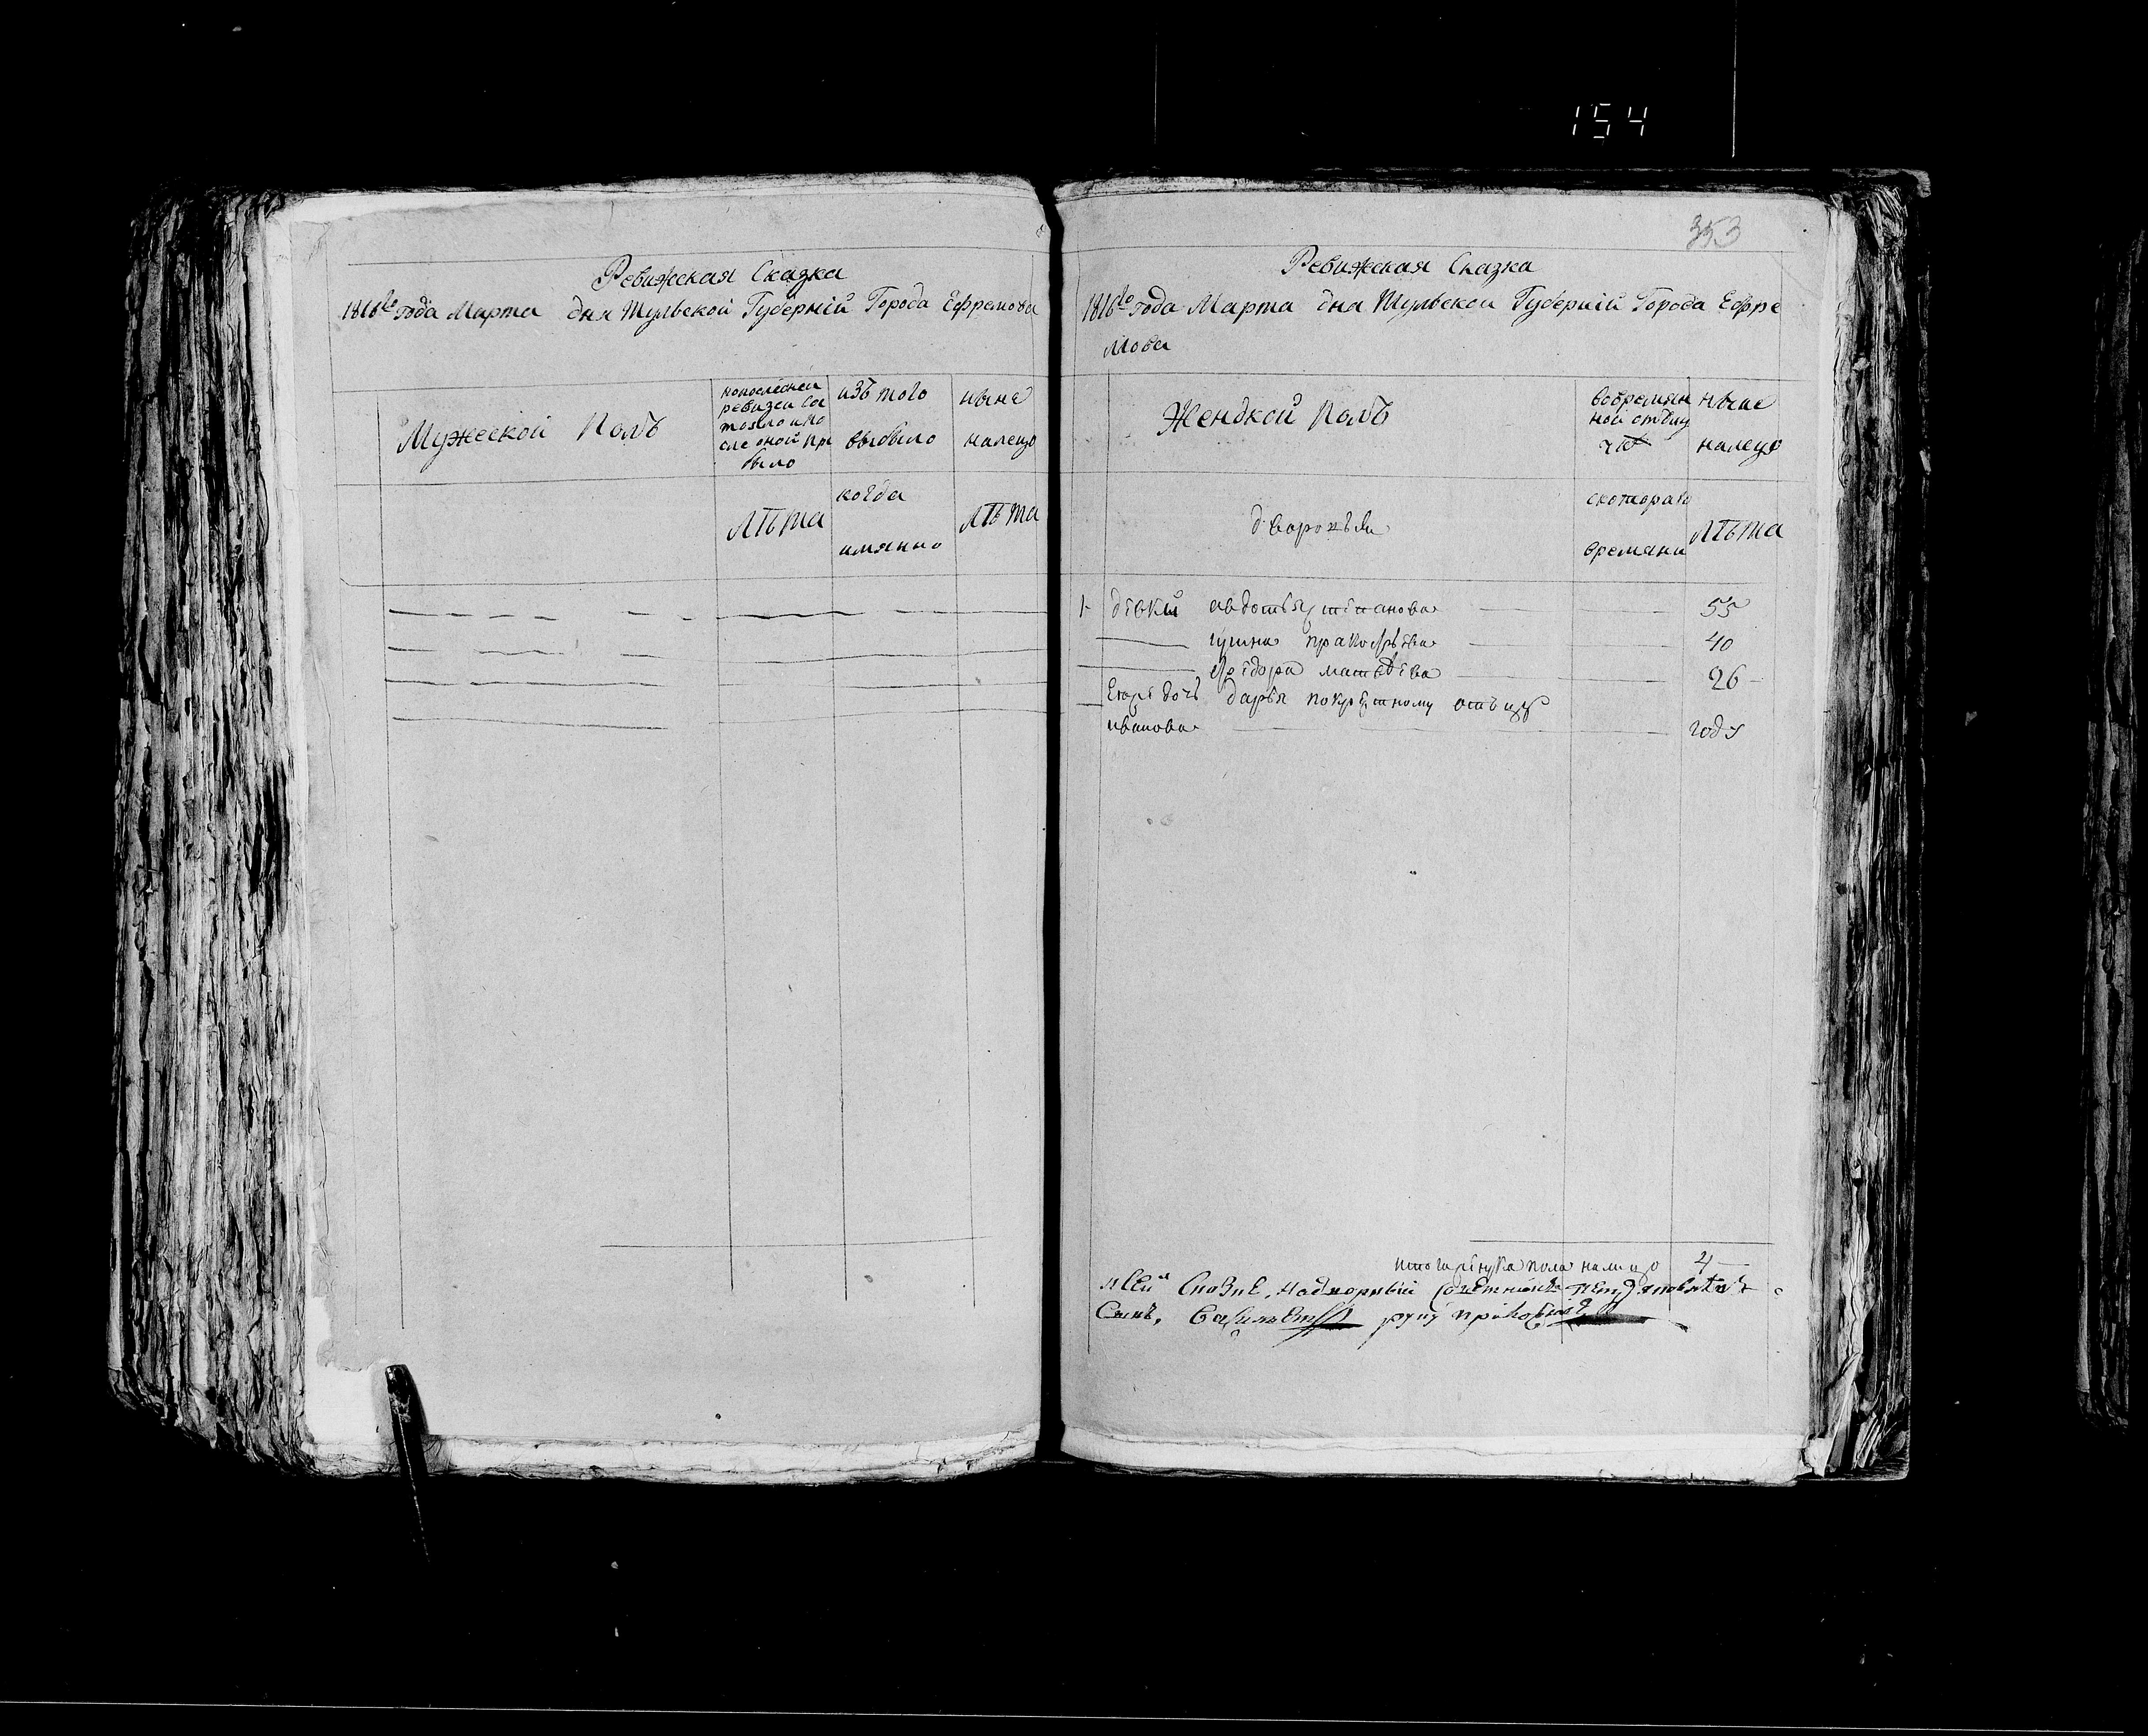 154
353
Ревижская Сказка
1816го года Марта дня Тульской Губерній Города Ефремова
Мужеской Полъ
попоследней
ревизеи Со
тояло ипо
сле оной при
было
изъ того
выбыло
ныне
налецо
лѣта
когда
имянно
лѣта
Ревижская Сказка
1816го года Марта дня Тульской Губерній Города Ефре
мова
Женской Полъ
вовремян
ной отлу
чке
ныне
налецо
дворовыя
скотораго
времяни
лѣта
1 девки авдотья степанова 55
40
матвѣева 26
дочь дарья покрестному отъцу
иванова году
пола налицо 4
Надворный
Сынъ, руку приложилъ